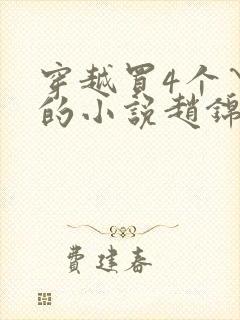 穿越買4个
的小说趙錦
費建春